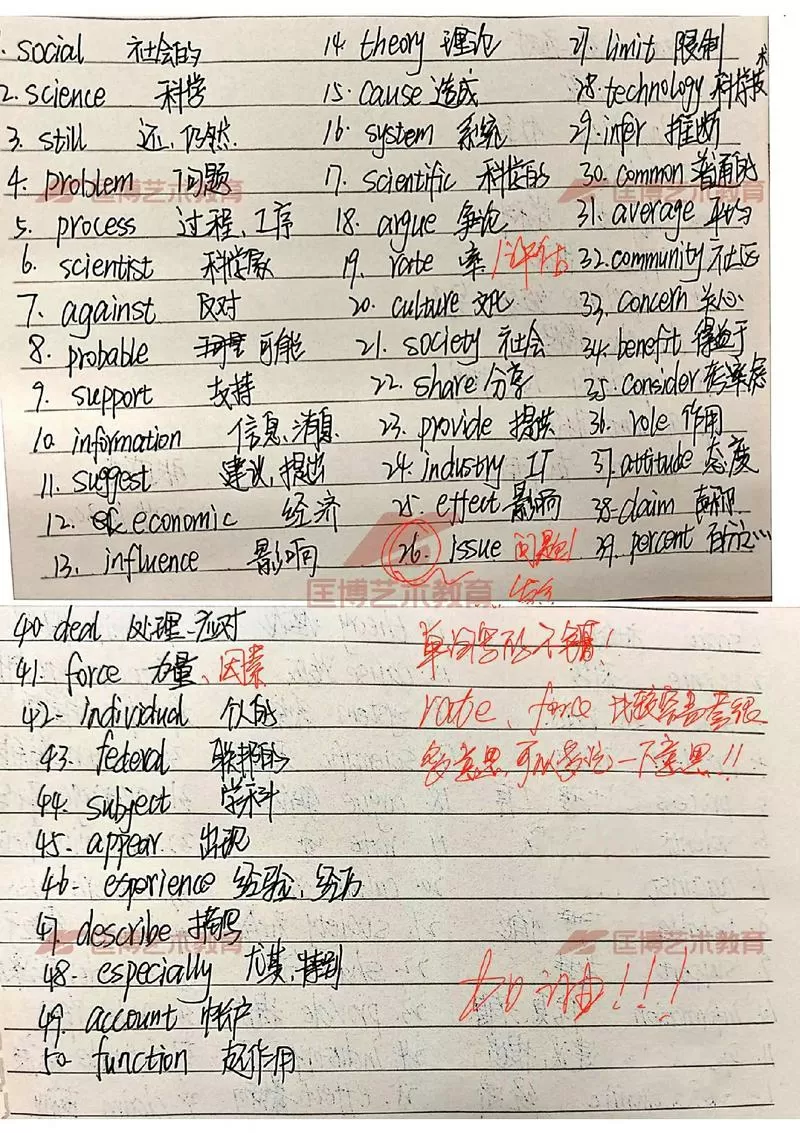 1. social 社会的
2. science 科学
3. still 还、仍然
4. problem 问题
5. process 过程、工序
6. scientist 科学家
7. against 反对
8. probable 可能
9. support 支持
10. information 信息、消息
11. suggest 建议、提出
12. economic 经济
13. influence 影响
14. theory 理论
15. cause 造成
16. system 系统
17. scientific 科学的
18. argue 争论
19. rate 率 评估
20. culture 文化
21. society 社会
22. share 分享
23. provide 提供
24. industry 工
25. effect 影响
26. issue 问题
27. limit 限制
28. technology 科学技术
29. infer 推断
30. common 普通的
31. average 平均
32. community 社区
33. concern 关心
34. benefit 得益于
35. consider 考虑
36. role 作用
37. attitude 态度
38. claim
39. percent 百分之…
匡博艺术教育
40. deal 处理、应对
41. force 力量、因素
42. individual 个人的
43. federal 联邦的
44. subject 学科
45. appear 出现
46. esperience 经验、经历
47. describe 描写
48. especially 尤其、特别
49. account 帐户
50. function 起作用
单词写的不错！
rate、force 比较容易
意思，可以 一下意思！！
加油！！！
匡博艺术教育